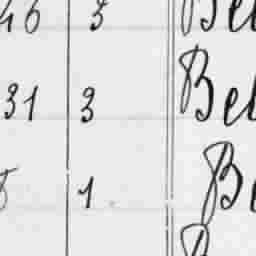 46 3 Bel
31 3 Bel
5 1 Be